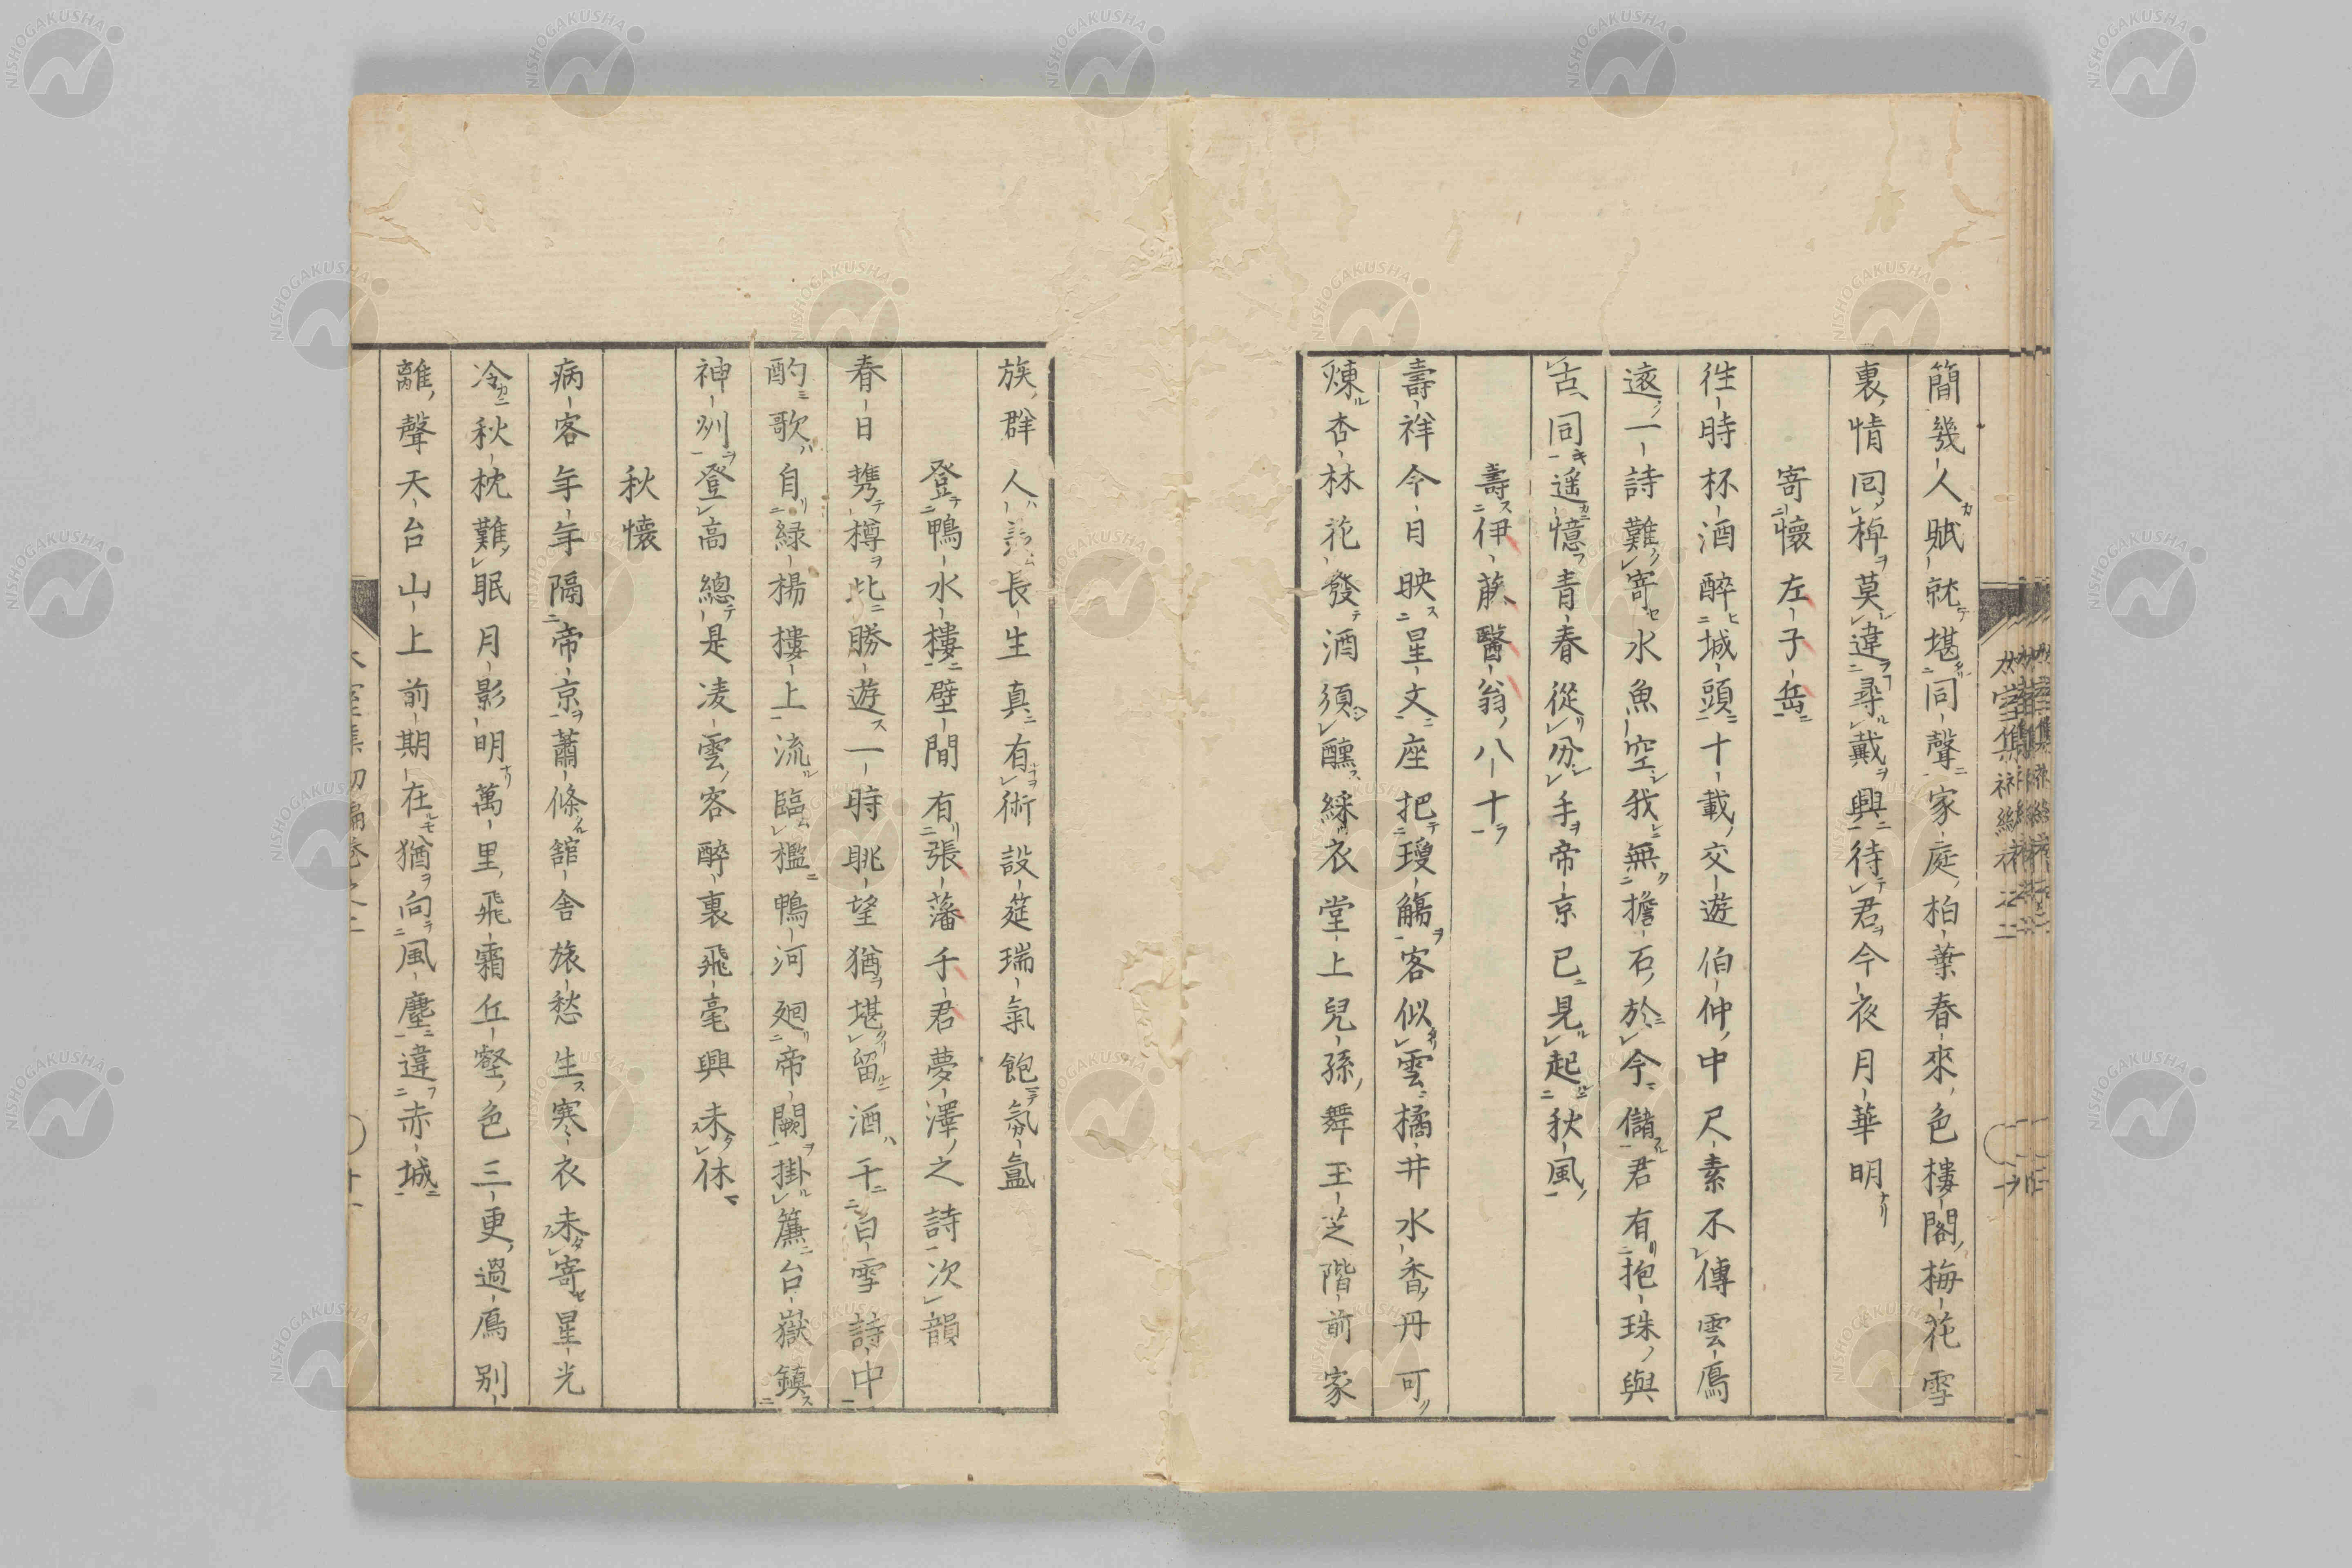 簡幾人賦就堪同聲家庭柏葉春來色樓閣梅花雪
裏情回棹莫違尋戴興待君今夜月華明
寄懷左子岳
徃時杯酒醉城頭十載交遊伯仲中尺素不傳雲鴈
遠一詩難寄水魚空我無擔石於今儲君有抱珠與
古同遥憶青春從分手帝京已見起秋風
壽伊藤醫翁八十
壽祥今日映星文座把瓊觴客似雲橘井水香丹可
煉杏林花發酒須醺綵衣堂上兒孫舞玉芝階前家
族群人羨長生真有術設筵瑞氣飽氛氳
登鴨水樓壁間有張藩千君夢澤之詩次韻
春日携樽此勝遊一時眺望猶堪留酒千白雪詩中
酌歌自緑楊樓上流臨檻鴨河廻帝闕掛簾台嶽鎮
神州登高總是凌雲客醉裏飛毫興未休
秋懷
病客年年隔帝京蕭條舘舎旅愁生寒衣未寄星光
冷秋枕難眠月影明萬里飛霜丘壑色三更過鴈别
離聲天台山上前期在猶向風塵違赤城